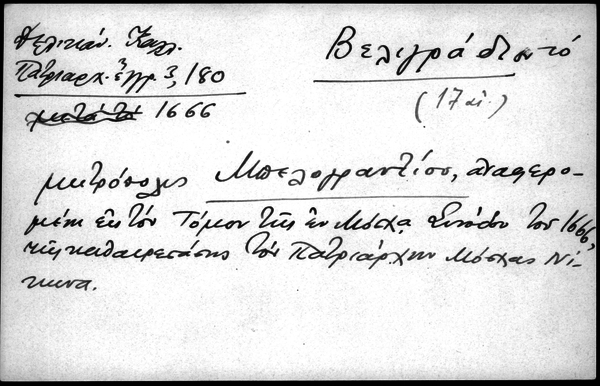 Δελικάν. Καλλ.
Πατριαρχ. ἔγγρ. 3, 180
μετὰ τὸ 1666
Βελιγράδιον τό
(17 αἰ.)
μητρόπολις Μπελογραντίου, ἀναφερο-
μένη εἰς τὸν Τόμον τῆς ἐν Μόσχᾳ Συνόδου τοῦ 1666,
τῆς καθαιρεσάσης τὸν Πατριάρχην Μόσχας Νί-
κωνα.